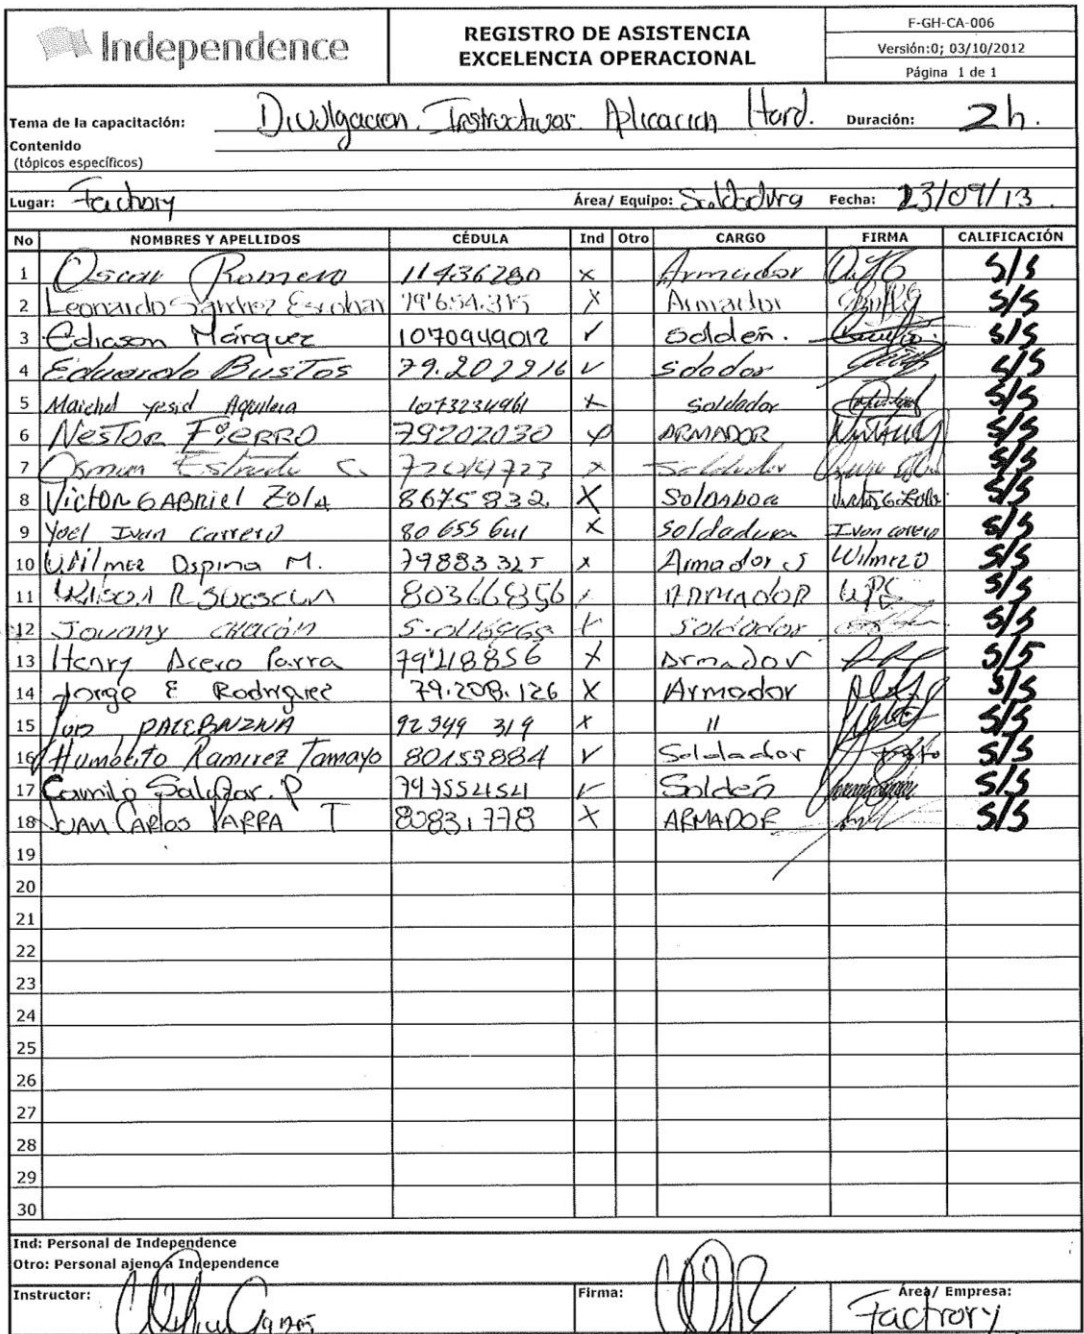 Independence
REGISTRO DE ASISTENCIA
EXCELENCIA OPERACIONAL
F-GH-CA-006
Versión:0; 03/10/2012
Página 1 de 1
Tema de la capacitación: Divulgacion Instructivos Aplicacion Hard. Duración: 2h.
Contenido
(tópicos específicos)
Lugar: Fachory Área/ Equipo: Soldadura Fecha: 23/09/13
No NOMBRES Y APELLIDOS CÉDULA Ind Otro CARGO FIRMA CALIFICACIÓN
1 Oscar Romero 11436280 x Armador 5/5
2 Leonardo Sánchez Escobar x Armador 5/5
3 Edicson Márquez 1070949012 ✓ Solden. 5/5
4 Eduardo BusTos 79.202216 ✓ Sodador 5/5
5 Maichel yesid Aquilera 1073234961 x Soldador 5/5
6 NESTOR FIERRO 79202030 x ARMADOR 5/5
7 Osman Estrada C. x Soldador 5/5
8 Victor GABRiel Zola 8675832. X Soldador 5/5
9 Yoel Ivan Carrero 80 655 641 x Soldadura Ivan carrero 5/5
10 Wilmer Ospina M. 79883325 x Armador S Wilmer O 5/5
11 80366856 ARMADOR 5/5
12 Jovany CHACÓN Soldador 5/5
13 Henry Acero Parra 79'218856 x Armador 5/5
14 Jorge E Rodriguez 79.208.126 X Armador 5/5
15 Luis 92949 319 x " 5/5
16 Humberto Ramirez Tamayo 80153884 ✓ Soldador 5/5
17 Camilo Salazar. P ✓ Soldeñ 5/5
18 JUAN CARlos PARRA T 80831778 X ARMADOR 5/5
19
20
21
22
23
24
25
26
27
28
29
30
Ind: Personal de Independence
Otro: Personal ajeno a Independence
Instructor: Firma: Área/ Empresa:
Factrory